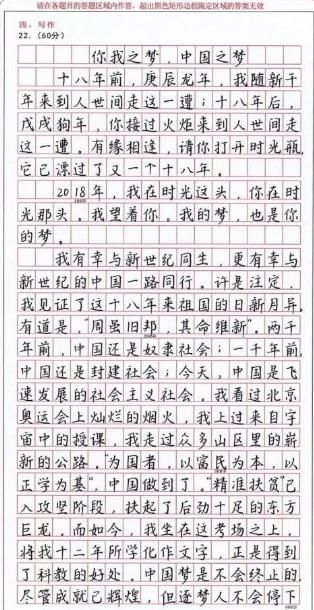 请在各题目的答题区域内作答，超出黑色矩形边框限定区域的答案无效
四、写作
22.（60分）
你我之梦，中国之梦
十八年前，庚辰龙年，我随新千
年来到人世间走这一遭；十八年后，
戊戌狗年，你接过火炬来到人世间走
这一遭。有缘相连，请你打开时光瓶，
它已漂过了又一个十八年。
2018年，我在时光这头，你在时
光那头。我望着你。我的梦，也是你
的梦。
我有幸与新世纪同生，更有幸与
新世纪的中国一路同行。许是注定，
我见证了这十八年来祖国的日新月异。
有道是，“周虽旧邦，其命维新”。两千
年前，中国还是奴隶社会；一千年前，
中国还是封建社会；今天，中国是飞
速发展的社会主义社会。我看过北京
奥运会上灿烂的烟火，我上过来自宇
宙中的授课，我走过众多山区里的崭
新的公路。“为国者，以富民为本，以
正学为基”，中国做到了。“精准扶贫”已
入攻坚阶段，扶起了后劲十足的东方
巨龙。而如今，我坐在这考场之上，
将我十二年所学化作文字，正是得到
了科教的好处。中国梦是不会终止的，
尽管成就已辉煌，但逐梦人不会停下